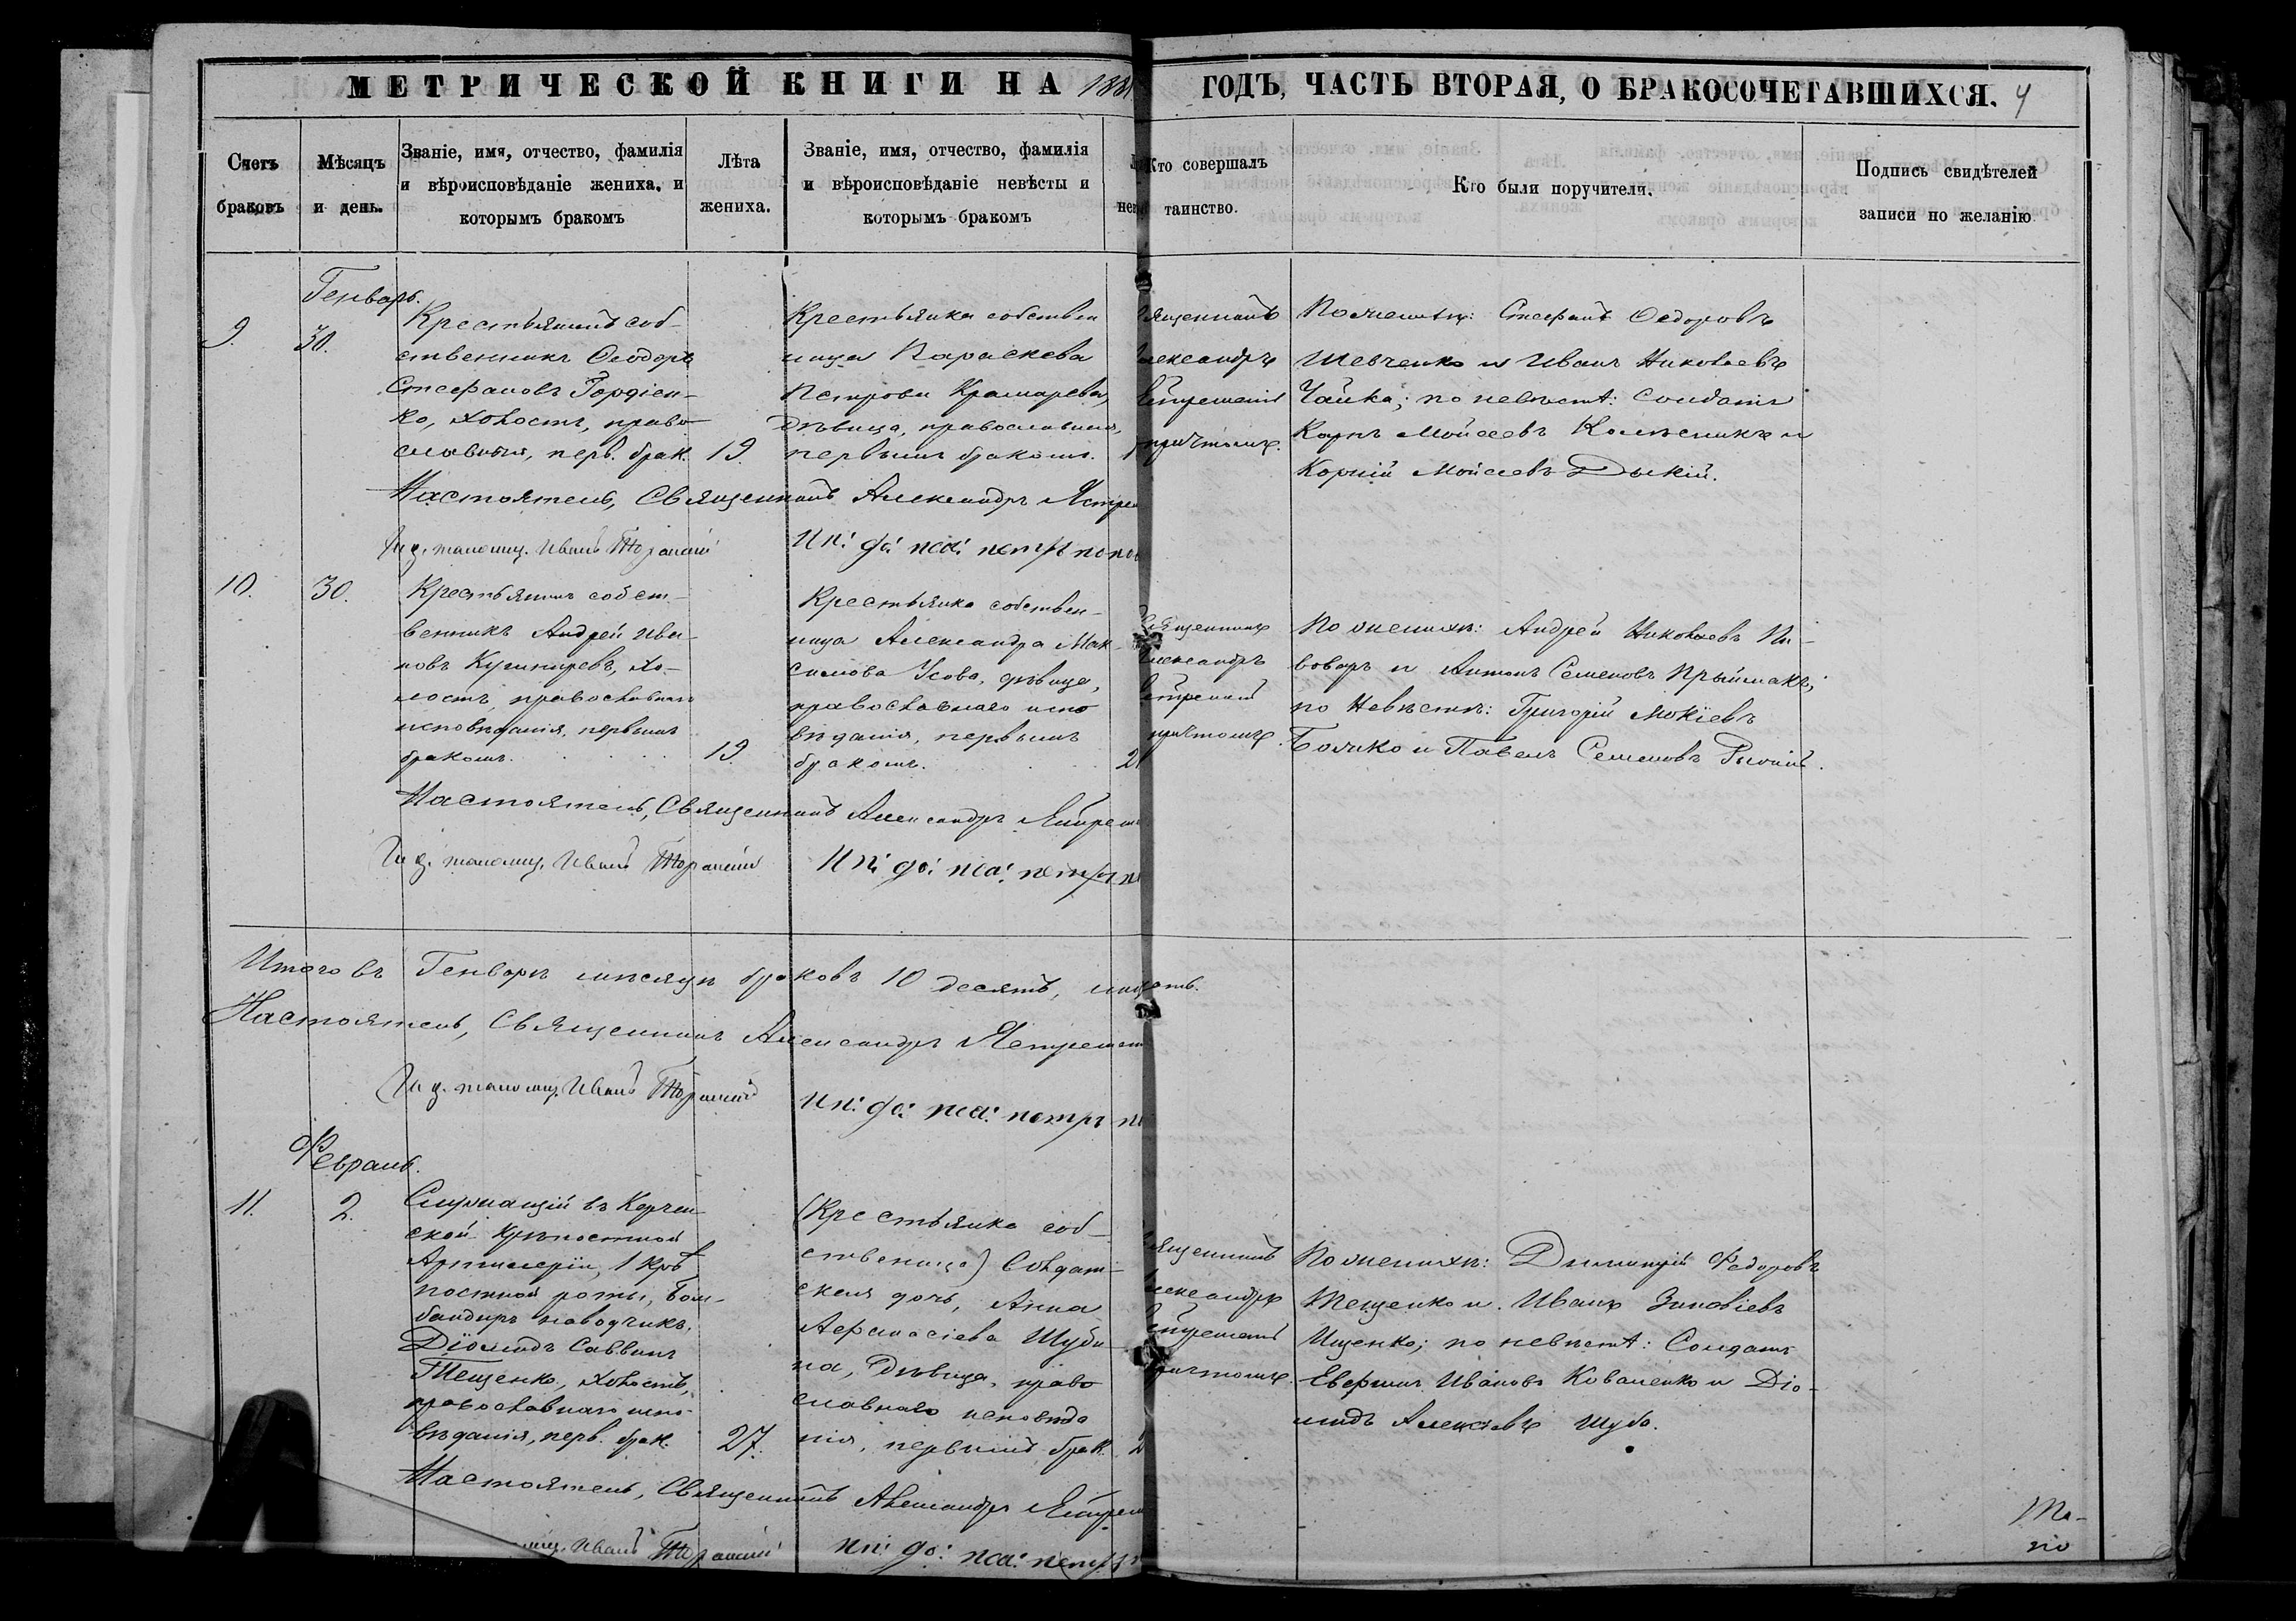 МЕТРИЧЕСКОЙ КНИГИ НА 1881
ГОДЪ, ЧАСТЬ ВТОРАЯ, О БРАКОСОЧЕТАВШИХСЯ. 4
Счетъ
браковъ
Мѣсяцъ
и день.
Званіе, имя, отчество, фамилія
и вѣроисповѣданіе жениха, и
которымъ бракомъ
Лѣта
жениха.
Званіе, имя, отчество, фамилія
и вѣроисповѣданіе невѣсты и
которымъ бракомъ
Кто совершалъ
таинство.
Кто были поручители.
Подпись свидѣтелей
записи по желанію
Генварь.
9.
30.
Крестьянинъ соб-
ственникъ Ѳеодоръ
Стефановъ Гордіен-
ко, холостъ, право-
славный, перв. брак.
19.
Крестьянка собствен
ница Параскева
Петрова Крамарева,
дѣвица, православная,
первымъ бракомъ.
священникъ
Александръ
причтомъ.
По женихѣ: Стефанъ Ѳедоровъ
Шевченко и Иванъ Николаевъ
Чайка; по невѣстѣ: Солдатъ
Карпъ Мойсеевъ Колѣсникъ и
Корній Мойсеевъ Дыкій.
Настоятель, Священникъ Александръ
Иванъ
Ип: до: пса: петръ
10.
30.
Крестьянинъ собст-
венникъ Андрей Ива-
новъ Кушниревъ, хо-
лостъ, православнаго
исповѣданія, первымъ
бракомъ.
19
Крестьянка собствен-
ница Александра Мак-
симова Усова, дѣвица,
православнаго испо
вѣданія, первымъ
бракомъ.
2
Священникъ
Александръ
причтомъ.
По женихѣ: Андрей Николаевъ Пи-
воваръ и Антонъ Семеновъ Прыймакъ;
по Невѣстѣ: Григорій Мокіевъ
Бочко и Павелъ Семеновъ
Настоятель, Священникъ Александръ
Иванъ
Ип: до: пса: петръ
Итого въ Генварѣ мѣсяцѣ браковъ 10 десять,
Настоятель, Священникъ Александръ
Иванъ
Ип: до: пса: петръ
Февраль.
11.
2.
Служащій въ Керчен-
ской крѣпостной
Артилеріи, 1 Крѣ
постной роты, Бом-
бандиръ наводчикъ,
Діомидъ Саввинъ
Тещенко, холостъ,
православнаго испо-
вѣданія, перв. брак.
27.
(Крестьянка соб-
ственица) Солдат-
ская дочь, Анна
Аѳанасіева Шуби-
на, Дѣвица, право
славнаго исповѣда
нія, первымъ брак.
2
священникъ
Александръ
причтомъ.
По женихѣ: Димитрій Федоровъ
Тещенко и Иванъ Зиновіевъ
Ищенко; по невѣстѣ: Солдатъ
Евфимъ Ивановъ Коваленко и Діо-
мидъ Алексѣевъ Шуба.
Настоятель, Священникъ Александръ
Иванъ
Ип: до: пса: петръ